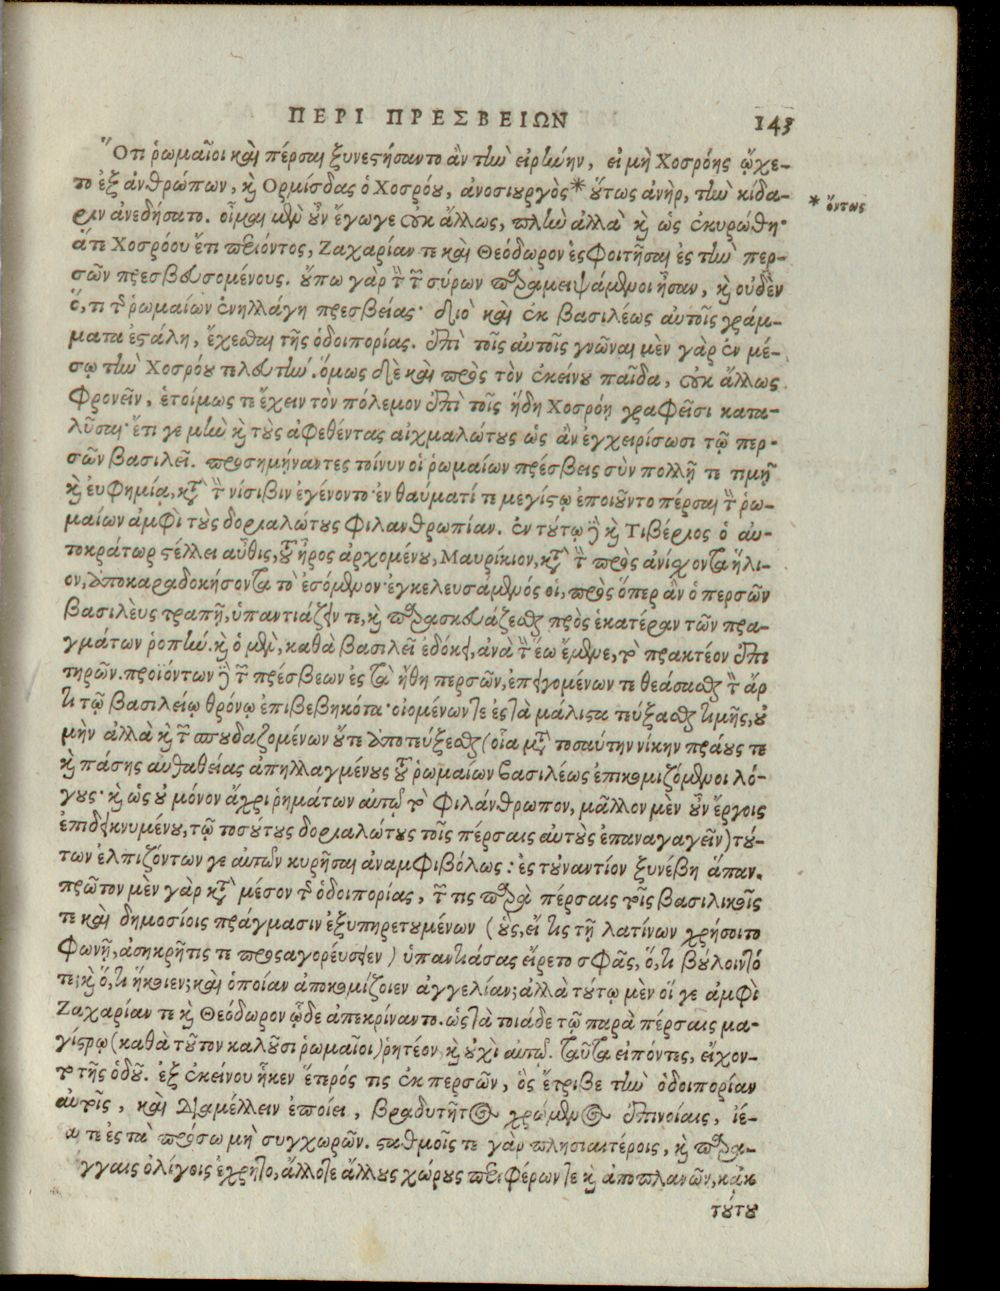 ΠΕΡΙ ΠΡΕΣΒΕΙΩΝ 143
Ὅτι ῥωμαῖοι καὶ πέρσαι ξυνεστήσαντο ἂν τὴν εἰρήνην, εἰ μὴ Χοσρόης ᾤχε-
το ἐξ ἀνθρώπων, καὶ Ορμίσδας ὁ Χοσρόου, ἀνοσιουργὸς * οὕτως ἀνὴρ, τὴν κίδα-
* ὄντως
ριν ἀνεδήσατο. οἶμαι μὲν οὖν ἔγωγε οὐκ ἄλλως, πλὴν ἀλλὰ καὶ ὡς ἐκυρώθη·
ἅτε Χοσρόου ἔτι περιόντος, Ζαχαρίαν τε καὶ Θεόδωρον ἐσφοιτῆσαι ἐς τὴν περ-
σῶν πρεσβευσομένους. οὔπω γὰρ τὴν τῶν σύρων παραμειψάμενοι ἦσαν, καὶ οὐδὲν
ὅ, τι τῆς ῥωμαίων ἐνηλλάγη πρεσβείας· διὸ καὶ ἐκ βασιλέως αὐτοῖς γράμ-
ματα ἐστάλη, ἔχεσθαι τῆς ὁδοιπορίας. ἐπὶ τοῖς αὐτοῖς γνῶναι μὲν γὰρ ἐν μέ-
σῳ τὴν Χοσρόου τελευτήν. ὅμως δὲ καὶ πρὸς τὸν ἐκείνου παῖδα, οὐκ ἄλλως
φρονεῖν, ἑτοίμως τε ἔχειν τὸν πόλεμον ἐπὶ τοῖς ἤδη Χοσρόῃ γραφεῖσι κατα-
λῦσαι· ἔτι γε μὴν καὶ τοὺς ἀφεθέντας αἰχμαλώτους ὡς ἂν ἐγχειρίσωσι τῷ περ-
σῶν βασιλεῖ. προσημήναντες τοίνυν οἱ ῥωμαίων πρέσβεις σὺν πολλῇ τε τιμῇ
καὶ εὐφημίᾳ, κατὰ τὴν νίσιβιν ἐγένοντο· ἐν θαύματί τε μεγίστῳ ἐποιοῦντο πέρσαι τὴν ῥω-
μαίων ἀμφὶ τοὺς δοριαλώτους φιλανθρωπίαν. ἐν τούτῳ δὲ καὶ Τιβέριος ὁ αὐ-
τοκράτωρ στέλλει αὖθις, τοῦ ἦρος ἀρχομένου, Μαυρίκιον, κατὰ τὸν πρὸς ἀνίσχοντα ἥλι-
ον, ἀποκαραδοκήσοντα τὸ ἐσόμενον· ἐγκελευσάμενός οἱ, πρὸς ὅπερ ἂν ὁ περσῶν
βασιλεὺς τραπῇ, ὑπαντιάζειν τε, καὶ παρασκευάζεσθαι πρὸς ἑκατέραν τῶν πρα-
γμάτων ῥοπήν. καὶ ὁ μὲν, καθὰ βασιλεῖ ἐδόκει, ἀνὰ τὴν ἕω ἔμενε, τὸ πρακτέον ἐπι
τηρῶν. προϊόντων δὲ τῶν πρέσβεων ἐς τὰ ἤθη περσῶν, ἐπειγομένων τε θεάσασθαι τὸν ἄρ
τι τῷ βασιλείῳ θρόνῳ ἐπιβεβηκότα· οἰομένων τε ἐς τὰ μάλιστα τεύξασθαι τιμῆς, οὐ
μὴν ἀλλὰ καὶ τῶν σπουδαζομένων οὔτε ἀποτεύξεσθαι (οἷα μετὰ τοσαύτην νίκην πράους τε
καὶ πάσης αὐθαδείας ἀπηλλαγμένους τοῦ ῥωμαίων βασιλέως ἐπικομιζόμενοι λό-
γους· καὶ ὡς οὐ μόνον ἄχρι ῥημάτων αὐτῷ τὸ φιλάνθρωπον, μᾶλλον μὲν οὖν ἔργοις
ἐπιδεικνυμένου, τῷ τοσούτους δοριαλώτους τοῖς πέρσαις αὐτοὺς ἐπαναγαγεῖν) τού-
των ἐλπιζόντων γε αὐτῶν κυρῆσαι ἀναμφιβόλως: ἐς τοὐναντίον ξυνέβη ἅπαν.
πρῶτον μὲν γὰρ κατὰ μέσον τῆς ὁδοιπορίας, τῶν τις παρὰ πέρσαις τοῖς βασιλικοῖς
τε καὶ δημοσίοις πράγμασιν ἐξυπηρετουμένων (οὓς, εἴ τις τῇ λατίνων χρήσοιτο
φωνῇ, ἀσηκρῆτις τε προσαγορέυσειεν) ὑπαντιάσας εἴρετο σφᾶς, ὅ, τι βούλοιντό
τε; καὶ ὅ, τι ἥκοιεν; καὶ ὁποίαν ἀποκομίζοιεν ἀγγελίαν; ἀλλὰ τούτῳ μὲν οἵ γε ἀμφὶ
Ζαχαρίαν τε καὶ Θεόδωρον ὧδε ἀπεκρίναντο. ὡς τὰ τοιάδε τῷ παρὰ πέρσαις μα-
γίστρῳ (καθὰ τοῦτον καλοῦσι ῥωμαῖοι) ῥητέον καὶ οὐχὶ αὐτῷ. ταῦτα εἰπόντες, εἴχον-
το τῆς ὁδοῦ. ἐξ ἐκείνου ἧκεν ἕτερός τις ἐκ περσῶν, ὃς ἔτριβε τὴν ὁδοιπορίαν
αὐτοῖς, καὶ διαμέλλειν ἐποίει, βραδυτῆτος χρώμενος ἐπινοίαις, ἰέ-
αι τε ἐς τὰ πρόσω μὴ συγχωρῶν. σταθμοῖς τε γὰρ πλησιαιτέροις, καὶ παρα-
γγαις ὀλίγοις ἐχρῆτο, ἄλλοτε ἄλλους χώρους περιφέρων τε καὶ ἀποπλανῶν, κἀκ
τούτου